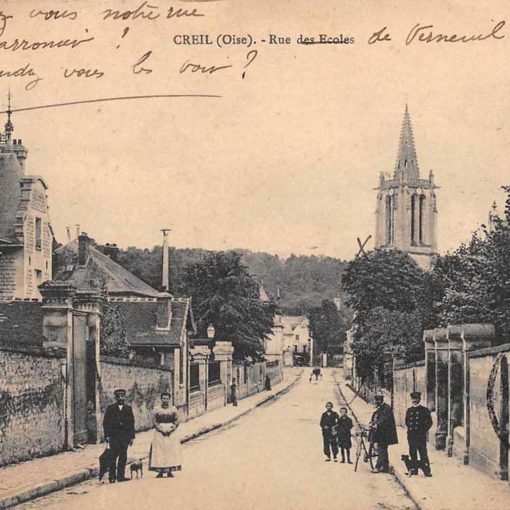 vous notre rue
marronier ?
vous les voir ?
CREIL (Oise). - Rue des Ecoles
de Verneuil